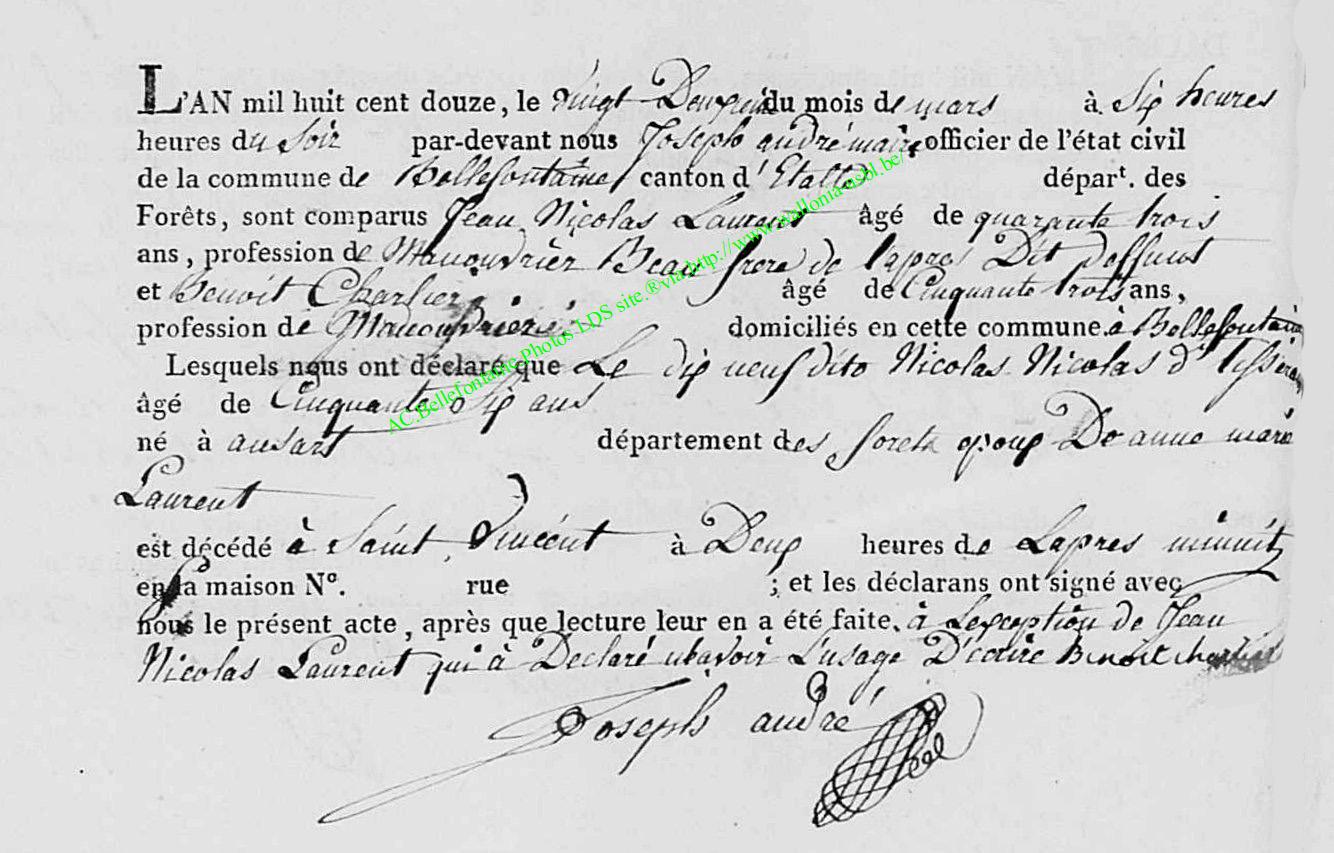 L'AN mil huit cent douze, le vingt Deuxieme du mois de mars à Six heures
heures du Soir par-devant nous Joseph andré maire officier de l'état civil
de la commune de Bellefontaine canton d'Etalle départ. des
Forêts, sont comparus Jean Nicolas Laurent âgé de quarante trois
ans, profession de Manouvrièr Beau frere de lapres Dit deffunt
et Benoit Charlier âgé de Cinquante trois ans,
profession de Manouvrièr domiciliés en cette commune à Bellefontaine
Lesquels nous ont déclaré que Le dix neuf dito Nicolas Nicolas d'
âgé de Cinquante Six ans
né à ansart département des forets epoux De anne marie
Laurent
est décédé à Saint Vincent à Deux heures de Lapres minuit
en la maison N°. rue ; et les déclarans ont signé avec
nous le présent acte, après que lecture leur en a été faite. à Lexception de Jean
Nicolas Laurent qui à Declaré navoir L'usage D'ecrire Benoit charlier
Joseph andré
AC.Bellefontaine.Photos LDS site.®via http://www.wallonia-asbl.be/